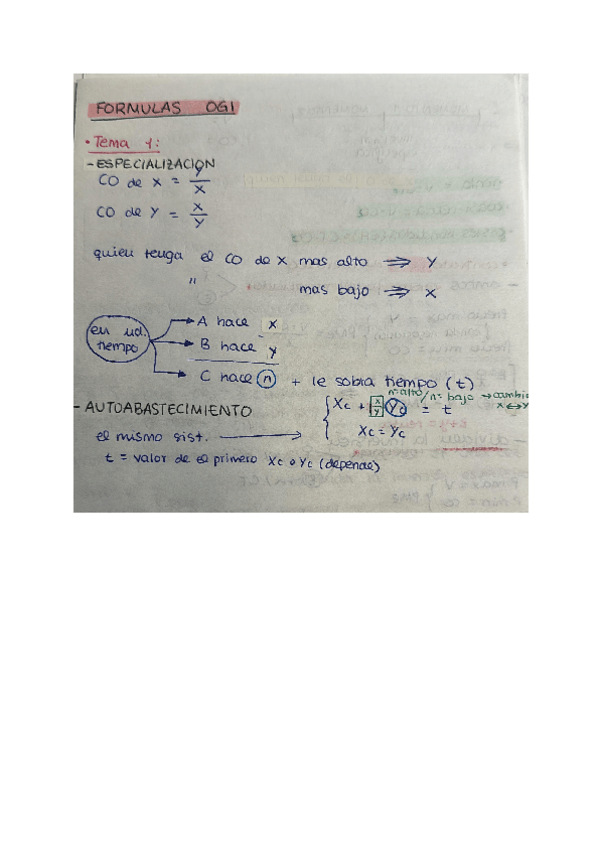 FORMULAS OGI
• Tema 1:
- ESPECIALIZACION
CO de X = Y/X
CO de Y = X/Y
quien tenga el CO de X mas alto ⇒ Y
" mas bajo ⇒ X
en ud. tiempo
A hace x
B hace y
C hace n + le sobra tiempo (t)
- AUTOABASTECIMIENTO
nº alto / nº bajo → cambia x ↔ y
Xc + x/y Yc = t
Xc = Yc
el mismo sist. →
t = valor de el primero Xc o Yc (depende)